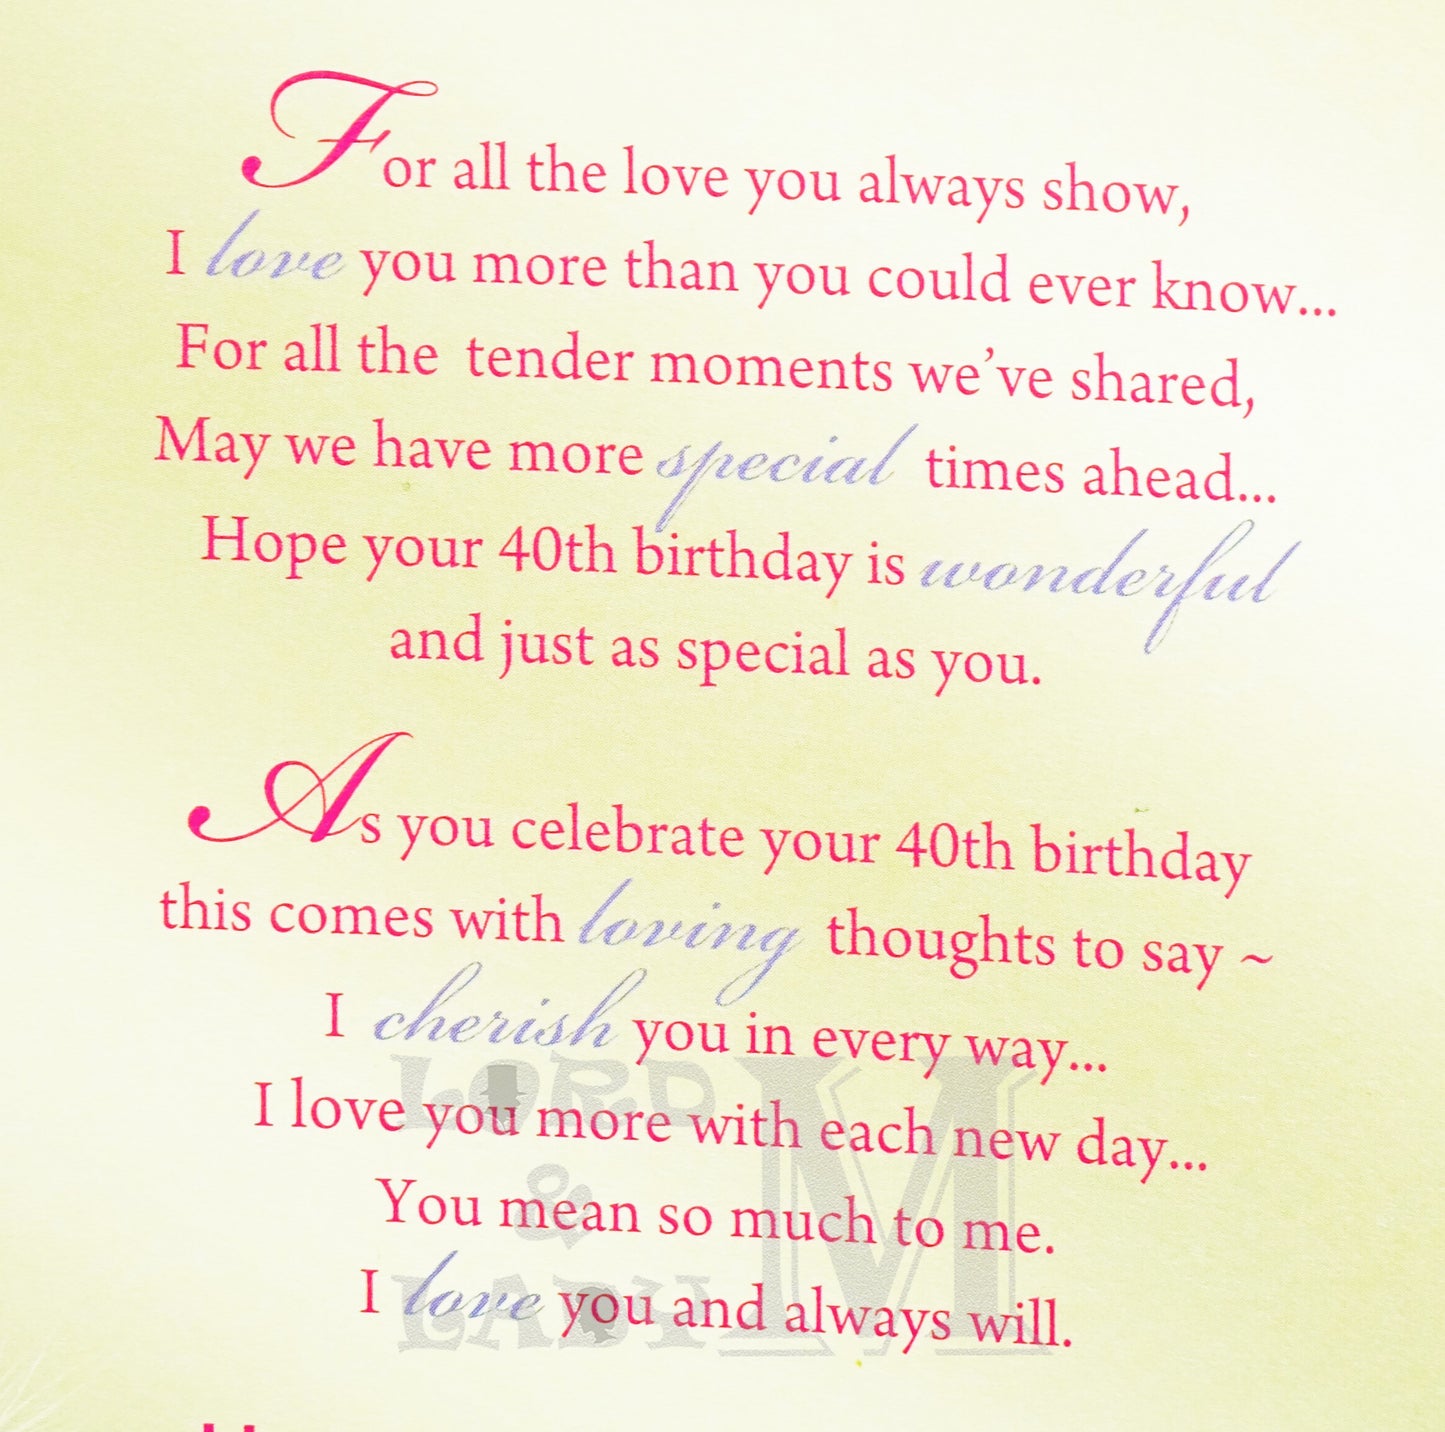 For all the love you always show,
I love you more than you could ever know...
For all the tender moments we’ve shared,
May we have more special times ahead...
Hope your 40th birthday is wonderful
and just as special as you.
As you celebrate your 40th birthday
this comes with loving thoughts to say ~
I cherish you in every way...
I love you more with each new day...
You mean so much to me.
I love you and always will.
LORD
&
LADY
M